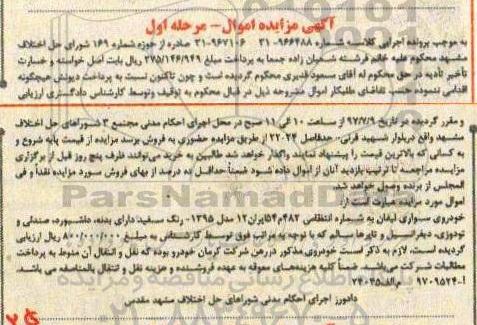 آگهی مزایده اموال - مرحله اول
به موجب پرونده اجرایی کلاسه شماره ۹۶۶۴۸۸-۳۱ ۹۶۷۱۰۶-۳۱ صادره از حوزه شماره ۱۶۹ شورای حل اختلاف
مشهد محکوم علیه خانم فرشته شعبان زاده جمعا به پرداخت مبلغ ۲۷۵/۱۴۶/۹۴۹ ریال بابت اصل خواسته و خسارت
تأخیر تأدیه در حق محکوم له آقای مسعود قدیری محکوم گردیده است و چون تاکنون نسبت به پرداخت دیونش هیچگونه
اقدامی ننموده حسب تقاضای طلبکار اموال مشروحه ذیل در قبال محکوم به توقیف و توسط کارشناس دادگستری ارزیابی
و مقرر گردیده در تاریخ ۹۷/۷/۹ از ساعت ۱۰ الی ۱۱ صبح در محل اجرای احکام مدنی مجتمع ۳ شوراهای حل اختلاف
مشهد واقع در بلوار شهید قرنی، حدفاصل ۲۴و۲۲ از طریق مزایده حضوری به فروش برسد مزایده از قیمت پایه شروع و
به کسانی که بالاترین قیمت را پیشنهاد نمایند واگذار خواهد شد طالبین به خرید می‌توانند ظرف پنج روز قبل از برگزاری
مزایده مراجعه تا ترتیب بازدید آنان از اموال داده شود ضمناً حداقل ده درصد از بهای فروش مورد مزایده نقداً و فی
المجلس از برنده وصول خواهد شد.
اموال مورد مزایده عبارت است از:
خودروی سواری لیفان به شماره انتظامی ۴۸۲م۵۴ایران۱۲ مدل ۱۳۹۵- رنگ سفید دارای بدنه، داشبورد، صندلی و
تودوزی، دیفرانسیل و تایرها سالم که با توجه به مراتب فوق توسط کارشناس به مبلغ ۸۰۰/۰۰۰/۰۰۰ ریال ارزیابی
گردیده است. لازم به ذکر است خودروی مذکور در رهن شرکت کرمان خودرو بوده که نقل و انتقال آن منوط به پرداخت
مطالبات شرکت می‌باشد. ضمناً کلیه هزینه‌های معوقه به عهده فروشنده و هزینه نقل و انتقال بالمناصفه می باشد.
آ-۹۷۰۹۵۲۴ م الف۲۴۰۳۵
دادورز اجرای احکام مدنی شوراهای حل اختلاف مشهد مقدس
ParsNamadData